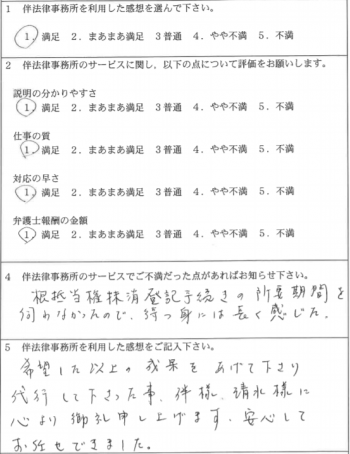 1 伴法律事務所を利用した感想を選んで下さい。
1. 満足 2. まあまあ満足 3 普通 4. やや不満 5. 不満
2 伴法律事務所のサービスに関し、以下の点について評価をお願いします。
説明の分かりやすさ
1. 満足 2. まあまあ満足 3 普通 4. やや不満 5. 不満
仕事の質
1. 満足 2. まあまあ満足 3 普通 4. やや不満 5. 不満
対応の早さ
1. 満足 2. まあまあ満足 3 普通 4. やや不満 5. 不満
弁護士報酬の金額
1. 満足 2. まあまあ満足 3 普通 4. やや不満 5. 不満
4 伴法律事務所のサービスでご不満だった点があればお知らせ下さい。
根抵当権抹消登記手続きの所要期間を
伺わなかったので、待つ身には長く感じた。
5 伴法律事務所を利用した感想をご記入下さい。
希望した以上の成果をあげて下さり
代行して下さった事、伴様、清水様に
心より御礼申し上げます。安心して
お任せできました。